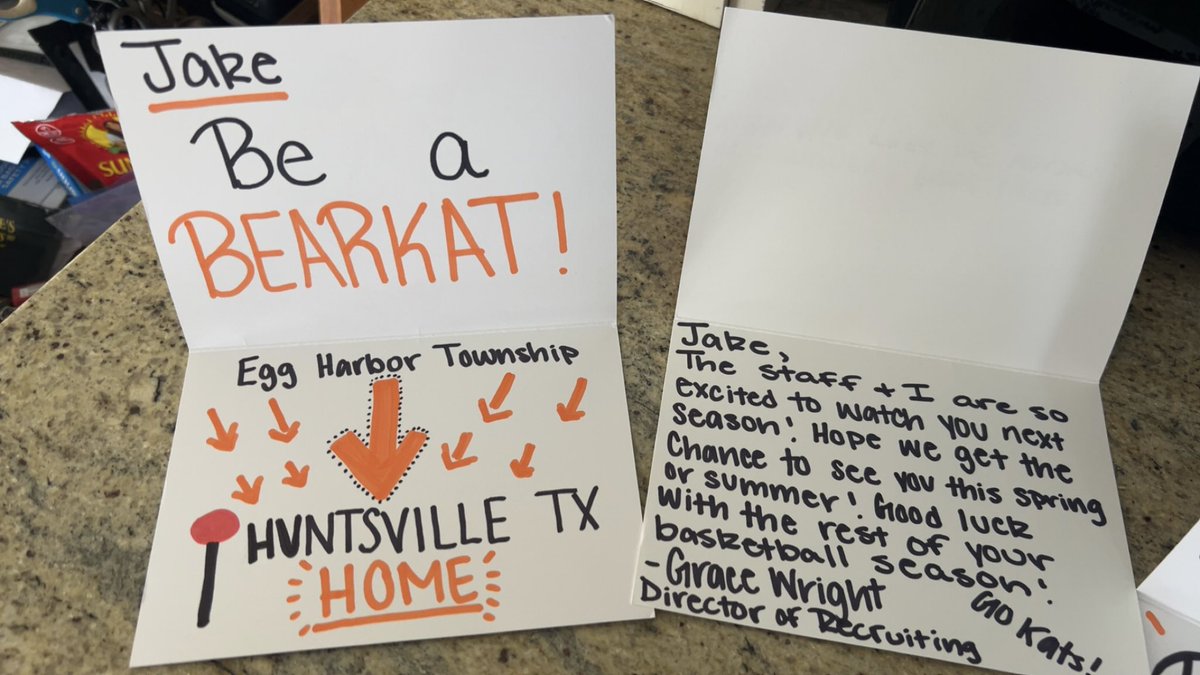 Jake
Be a
BEARKAT!
Egg Harbor Township
HUNTSVILLE TX
HOME
Jake,
The staff + I are so
excited to watch you next
season! Hope we get the
chance to see you this spring
or summer! Good luck
with the rest of your
basketball season!
-Grace Wright
Director of Recruiting
Go Kats!
SUN